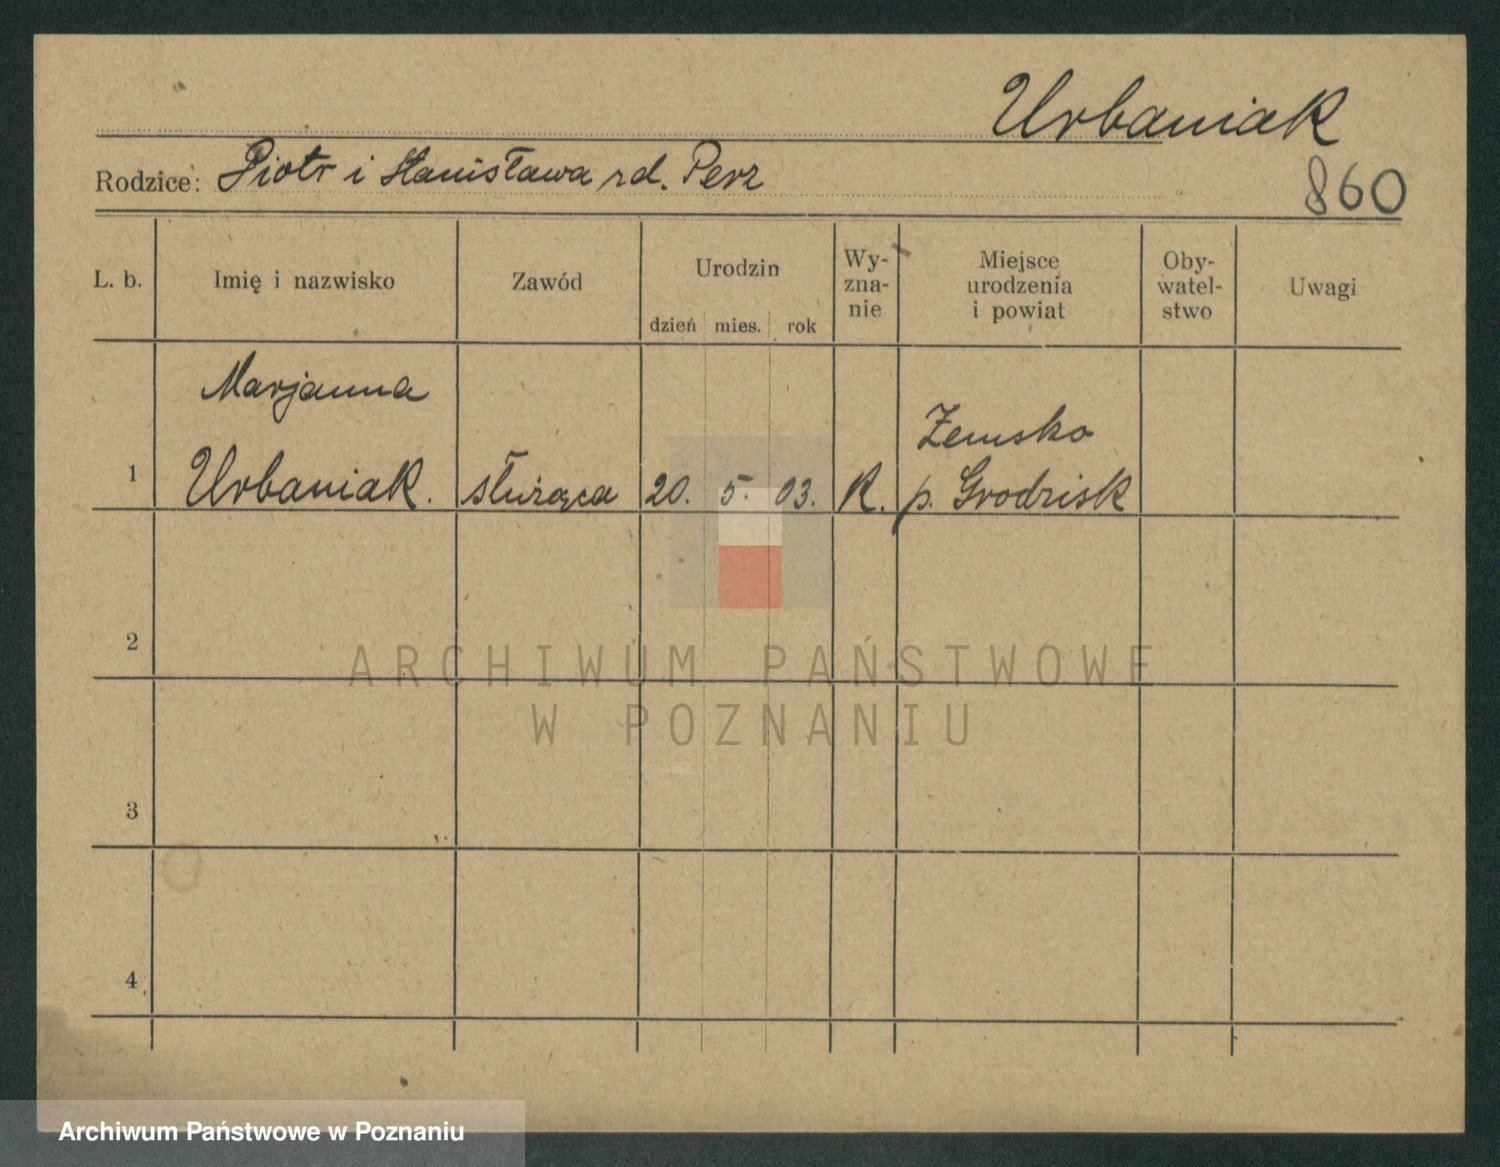 Urbaniak
Rodzice: Piotr i Stanisława rd. Perz
860
L. b.
Imię i nazwisko
Zawód
Urodzin
dzień mies. rok
Wy-
zna-
nie
Miejsce
urodzenia
i powiat
Oby-
watel-
stwo
Uwagi
Marjanna
Zemsko
1 Urbaniak. służąca 20. 5. 03. K. p. Grodzisk
2
ARCHIWUM PAŃSTWOWE
W POZNANIU
3
4
Archiwum Państwowe w Poznaniu